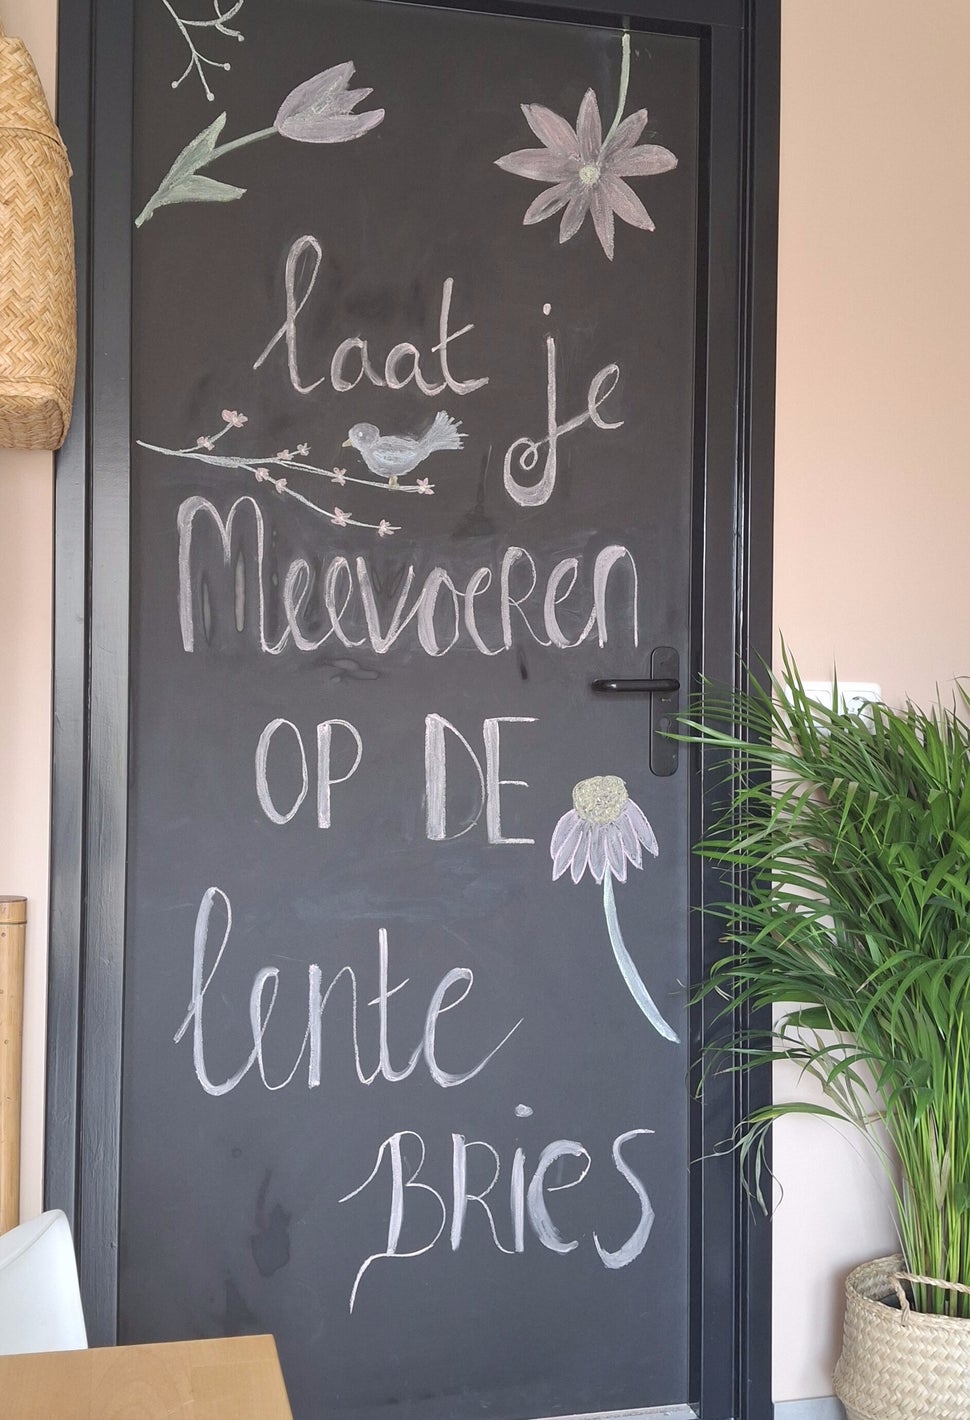 laat je
MeevoeRen
OP DE
lente
BRies